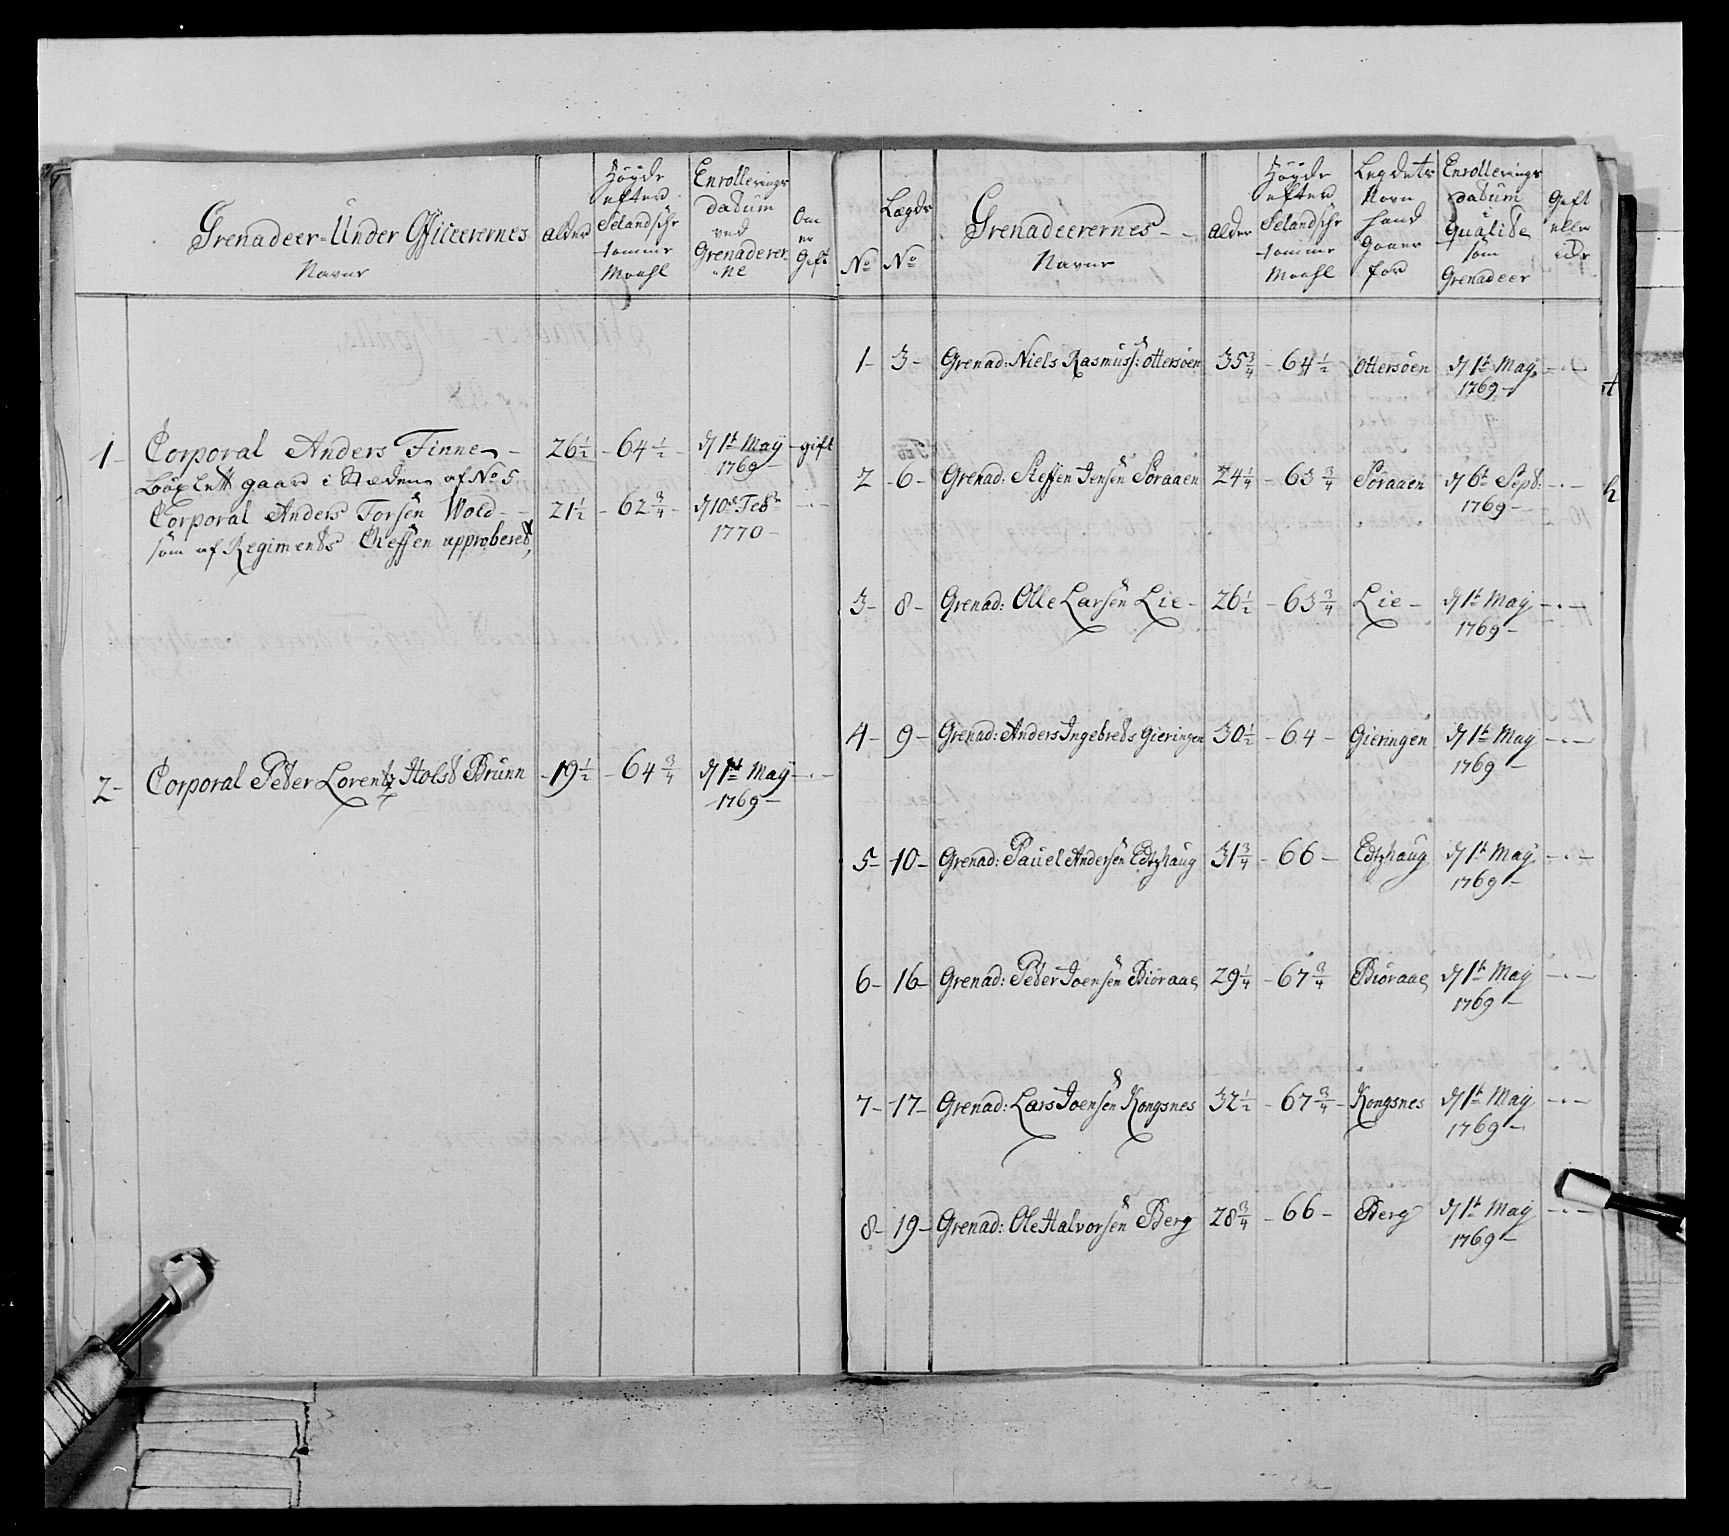 Grenadeer-Under Officerernes
Navne
Alder
Høyde
efter
Selandsche
tomme
Maahl
Enrollerings
Datum
ved
Grenaderer
ne
Om
er
Gift
1 - Corporal Anders Finne - 26 1/2 - 64 1/2 - d 1te May - gift
1769 -
gaard i Stæden af No 5
Corporal Anders Torsen Wold - 21 1/2 - 62 3/4 - d 10de Febr - . -
1770 -
som af Regiments Cheffen approberet,
2 - Corporal Peter Lorentz Holst Brunn - 19 1/2 - 64 3/4 d 1te May - . -
1769 -
No
Lægds
No
Grenadeerernes -
Navne
Alder
Høyde
efter
Selandsche
tomme
Maahl
Legdets
Navn
hand
gaaer
for
Enrollerings
Datum
i
Qualite
som
Grenadeer
Gift
eller
ei
1 - 3 - Grenad: Niels Rasmuss: Ottersøen 35 3/4 - 64 1/2 Ottersøen d 1te May - . -
1769 -
2 - 6 - Grenad: Steffen Jensen Søraaen 24 1/4 - 63 3/4 Søraaen d 6te Sept: - . -
1769 -
3 - 8 - Grenad: Olle Larsen Lie - 26 1/2 - 63 3/4 Lie - d 1te May - . -
1769 -
4 - 9 - Grenad: Anders Ingebrets Gieringen 30 1/2 - 64 - Gieringen d 1te May - . -
1769 -
5 - 10 - Grenad: Pauel Andersen Edtzhaug 31 3/4 - 66 - Edtzhaug d 1te May - . -
1769 -
6 - 16 - Grenad: Peder Joensen Biøraae 29 1/4 - 67 3/4 Biøraae d 1te May - . -
1769 -
7 - 17 - Grenad: Lars Joensen Kongsnes 32 1/2 - 67 3/4 - Kongsnes d 1te May - . -
1769 -
8 - 19 - Grenad: Ole Halvorsen Berg 28 3/4 - 66 - Berg d 1te May - . -
1769 -